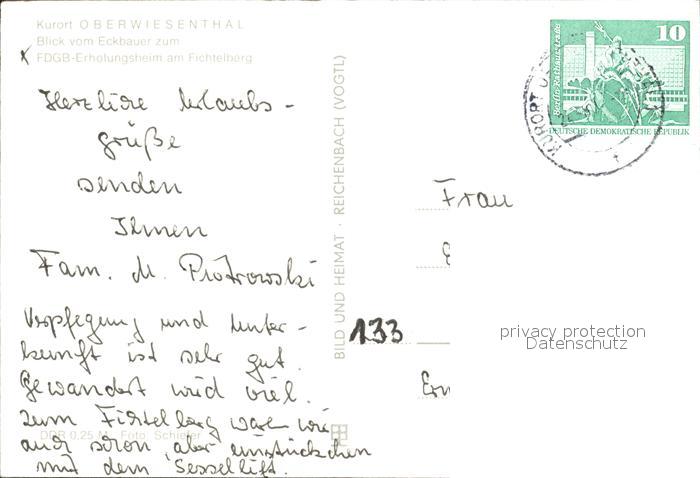 Kurort OBERWIESENTHAL
Blick vom Eckbauer zum
FDGB-Erholungsheim am Fichtelberg
Herzliche Urlaubs-
grüße
senden
Ihnen
Fam. M. Piotrowski
Verpflegung und Unter-
kunft ist sehr gut.
Gewandert wird viel.
Zum Fichtelberg waren wir
auch schon, aber ein Stückchen
mit dem Sessellift.
DDR 0,25 M Foto: Schiefer
BILD UND HEIMAT · REICHENBACH (VOGTL)
133
10
Berlin-Rathausstraße
DEUTSCHE DEMOKRATISCHE REPUBLIK
KURORT
Frau
privacy protection
Datenschutz